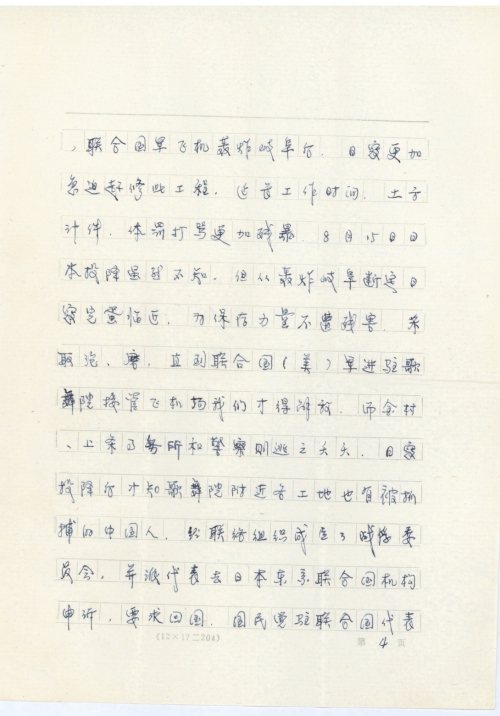 ，联合国军飞机轰炸岐阜后．日寇更加
急迫赶修此工程．延长工作时间．土方
计件．体罚打骂更加残暴．8月15日日
本投降虽就不知．但从轰炸岐阜断定日
寇完蛋临近．为保存力量不遭残害．采
取泡、磨．直到联合国（美）军进驻歌
舞院接管飞机场我们才得解放．而
、上 所和警察则逃之夭夭．日寇
投降后才知歌舞院附近各工地也有被抓
捕的中国人．经联络组织成立了 委
员会．并派代表去日本东京联合国机构
申诉．要求回国．国民党驻联合国代表
(12×17=204)
第 4 页